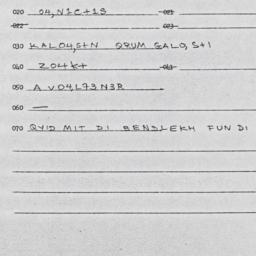 020 04,N1C+1S 021
022 023
030 KAL04,S+N QRUM GAL0,S+1
040 Z04K+ 041
050 A V04,L73N3R
060 —
070 QVID MIT DI BENDLEKH FUN DI